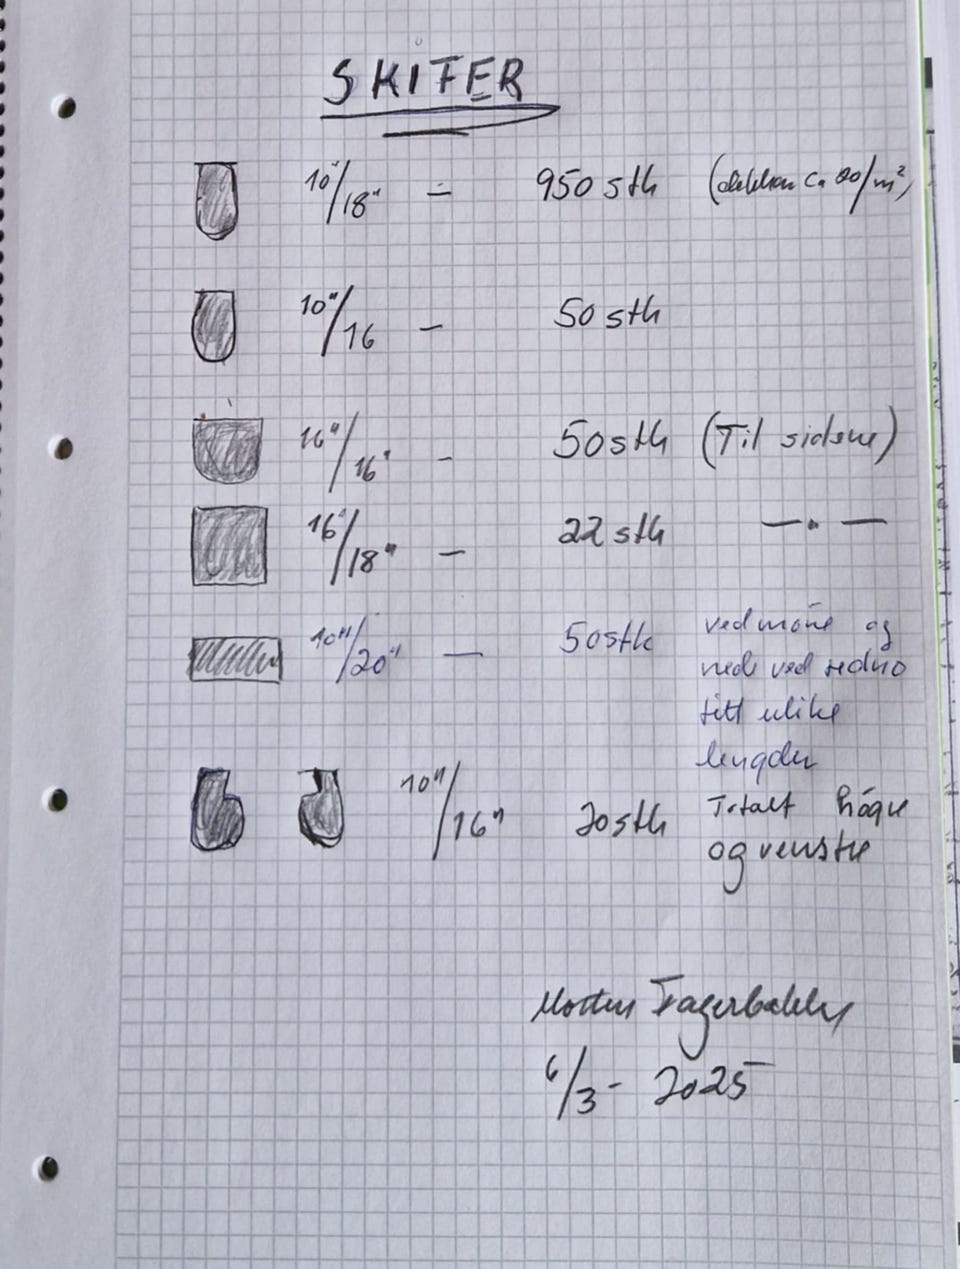 SKIFER
10"/18" - 950 stk (dekker ca 20/m²)
10"/16 - 50 stk
16"/16" - 50 stk (Til sidene)
16"/18" - 22 stk —"—
10"/20" - 50 stk ved møne og
nede ved
litt ulike
lengder
10"/16" 20 stk Totalt høgre
og venstre
Morten Fagerbakke
6/3- 2025